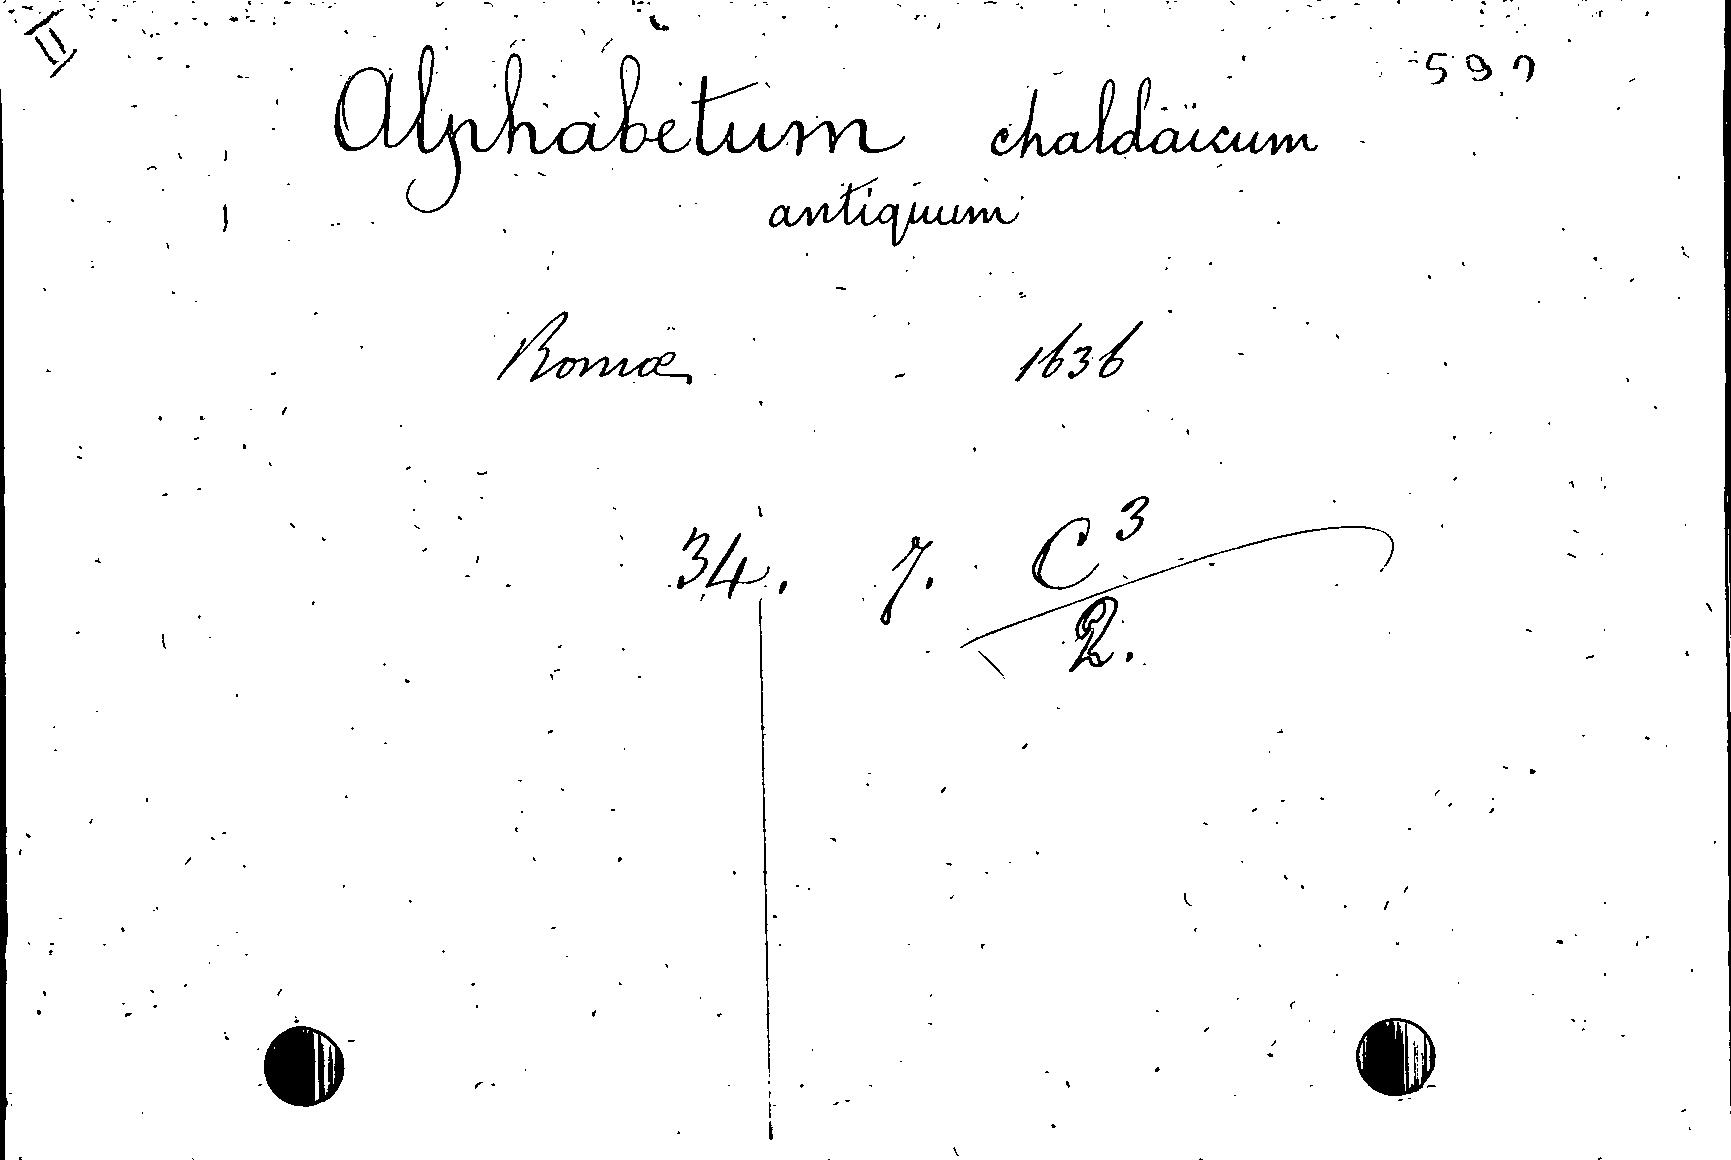 II
Alphabetum chaldaïcum
antiquum
Romæ 1636
34. 7. C³
2.